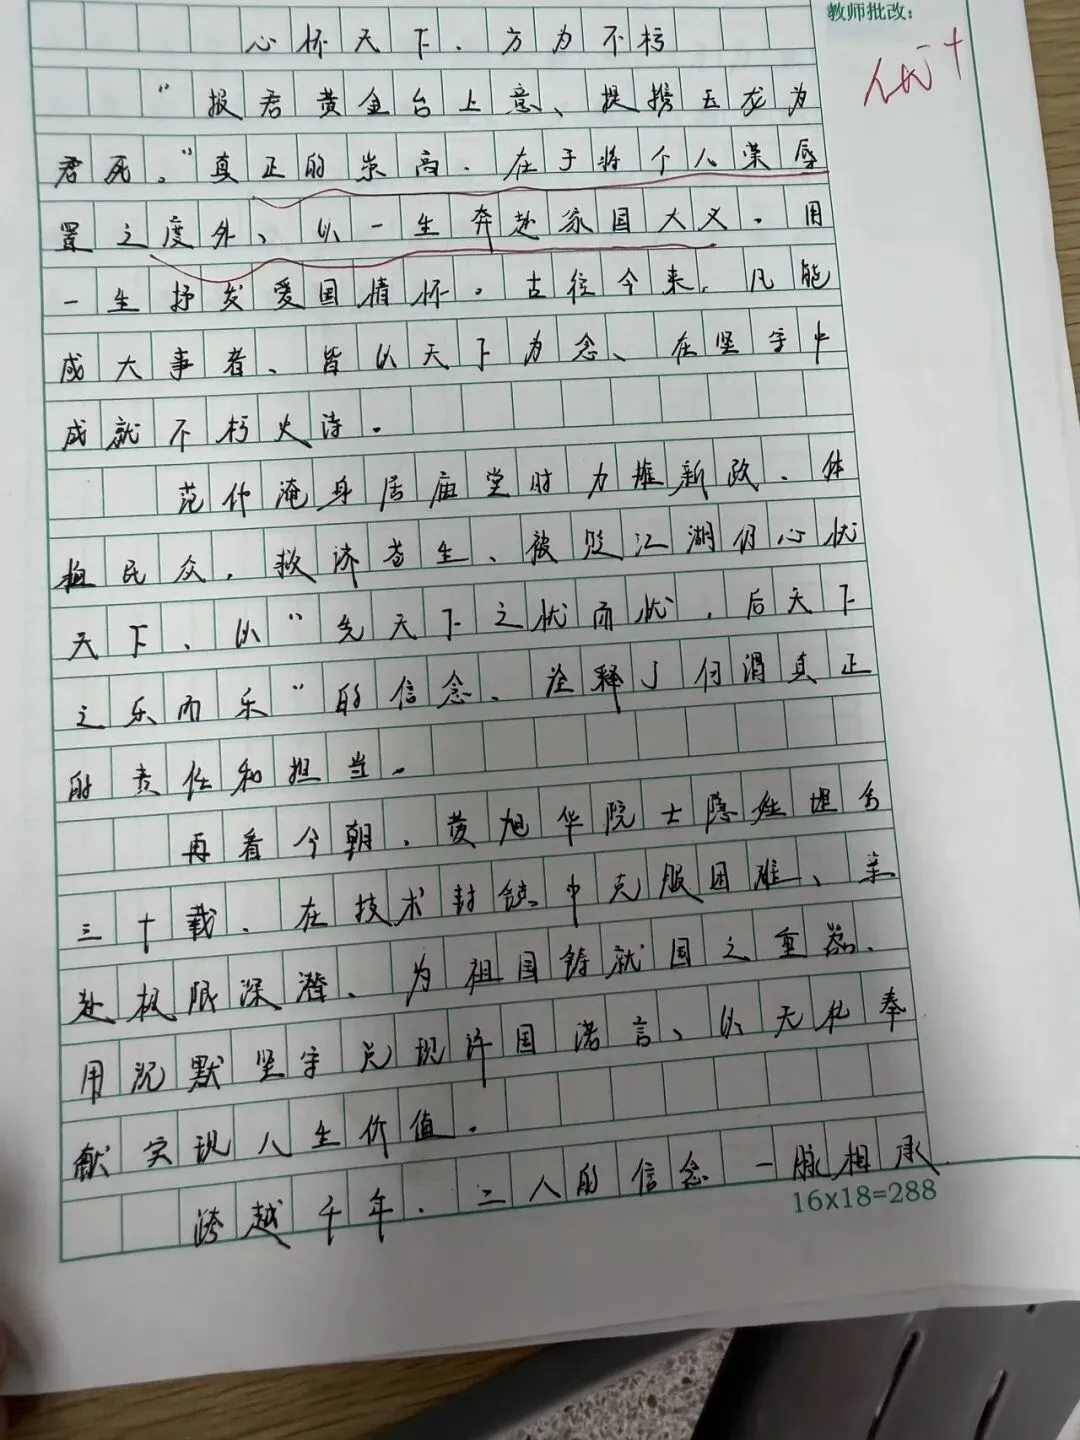 教师批改：
优+
心怀天下，方为不朽
“报君黄金台上意、提携玉龙为
君死。”真正的崇高，在于将个人荣辱
置之度外、以一生奔赴家国大义。用
一生抒发爱国情怀。古往今来，凡能
成大事者、皆以天下为念、在坚守中
成就不朽火诗。
范仲淹身居庙堂时力推新政，体
恤民众，救济苍生、被贬江湖仍心忧
天下、以“先天下之忧而忧，后天下
之乐而乐”的信念、诠释了何谓真正
的责任和担当。
再看今朝，黄旭华院士隐姓埋名
三十载、在技术封锁中克服困难、亲
赴极限深潜、为祖国铸就国之重器、
用沉默坚守兑现许国诺言、以无私奉
献实现人生价值。
跨越千年，二人的信念一脉相承
16x18=288